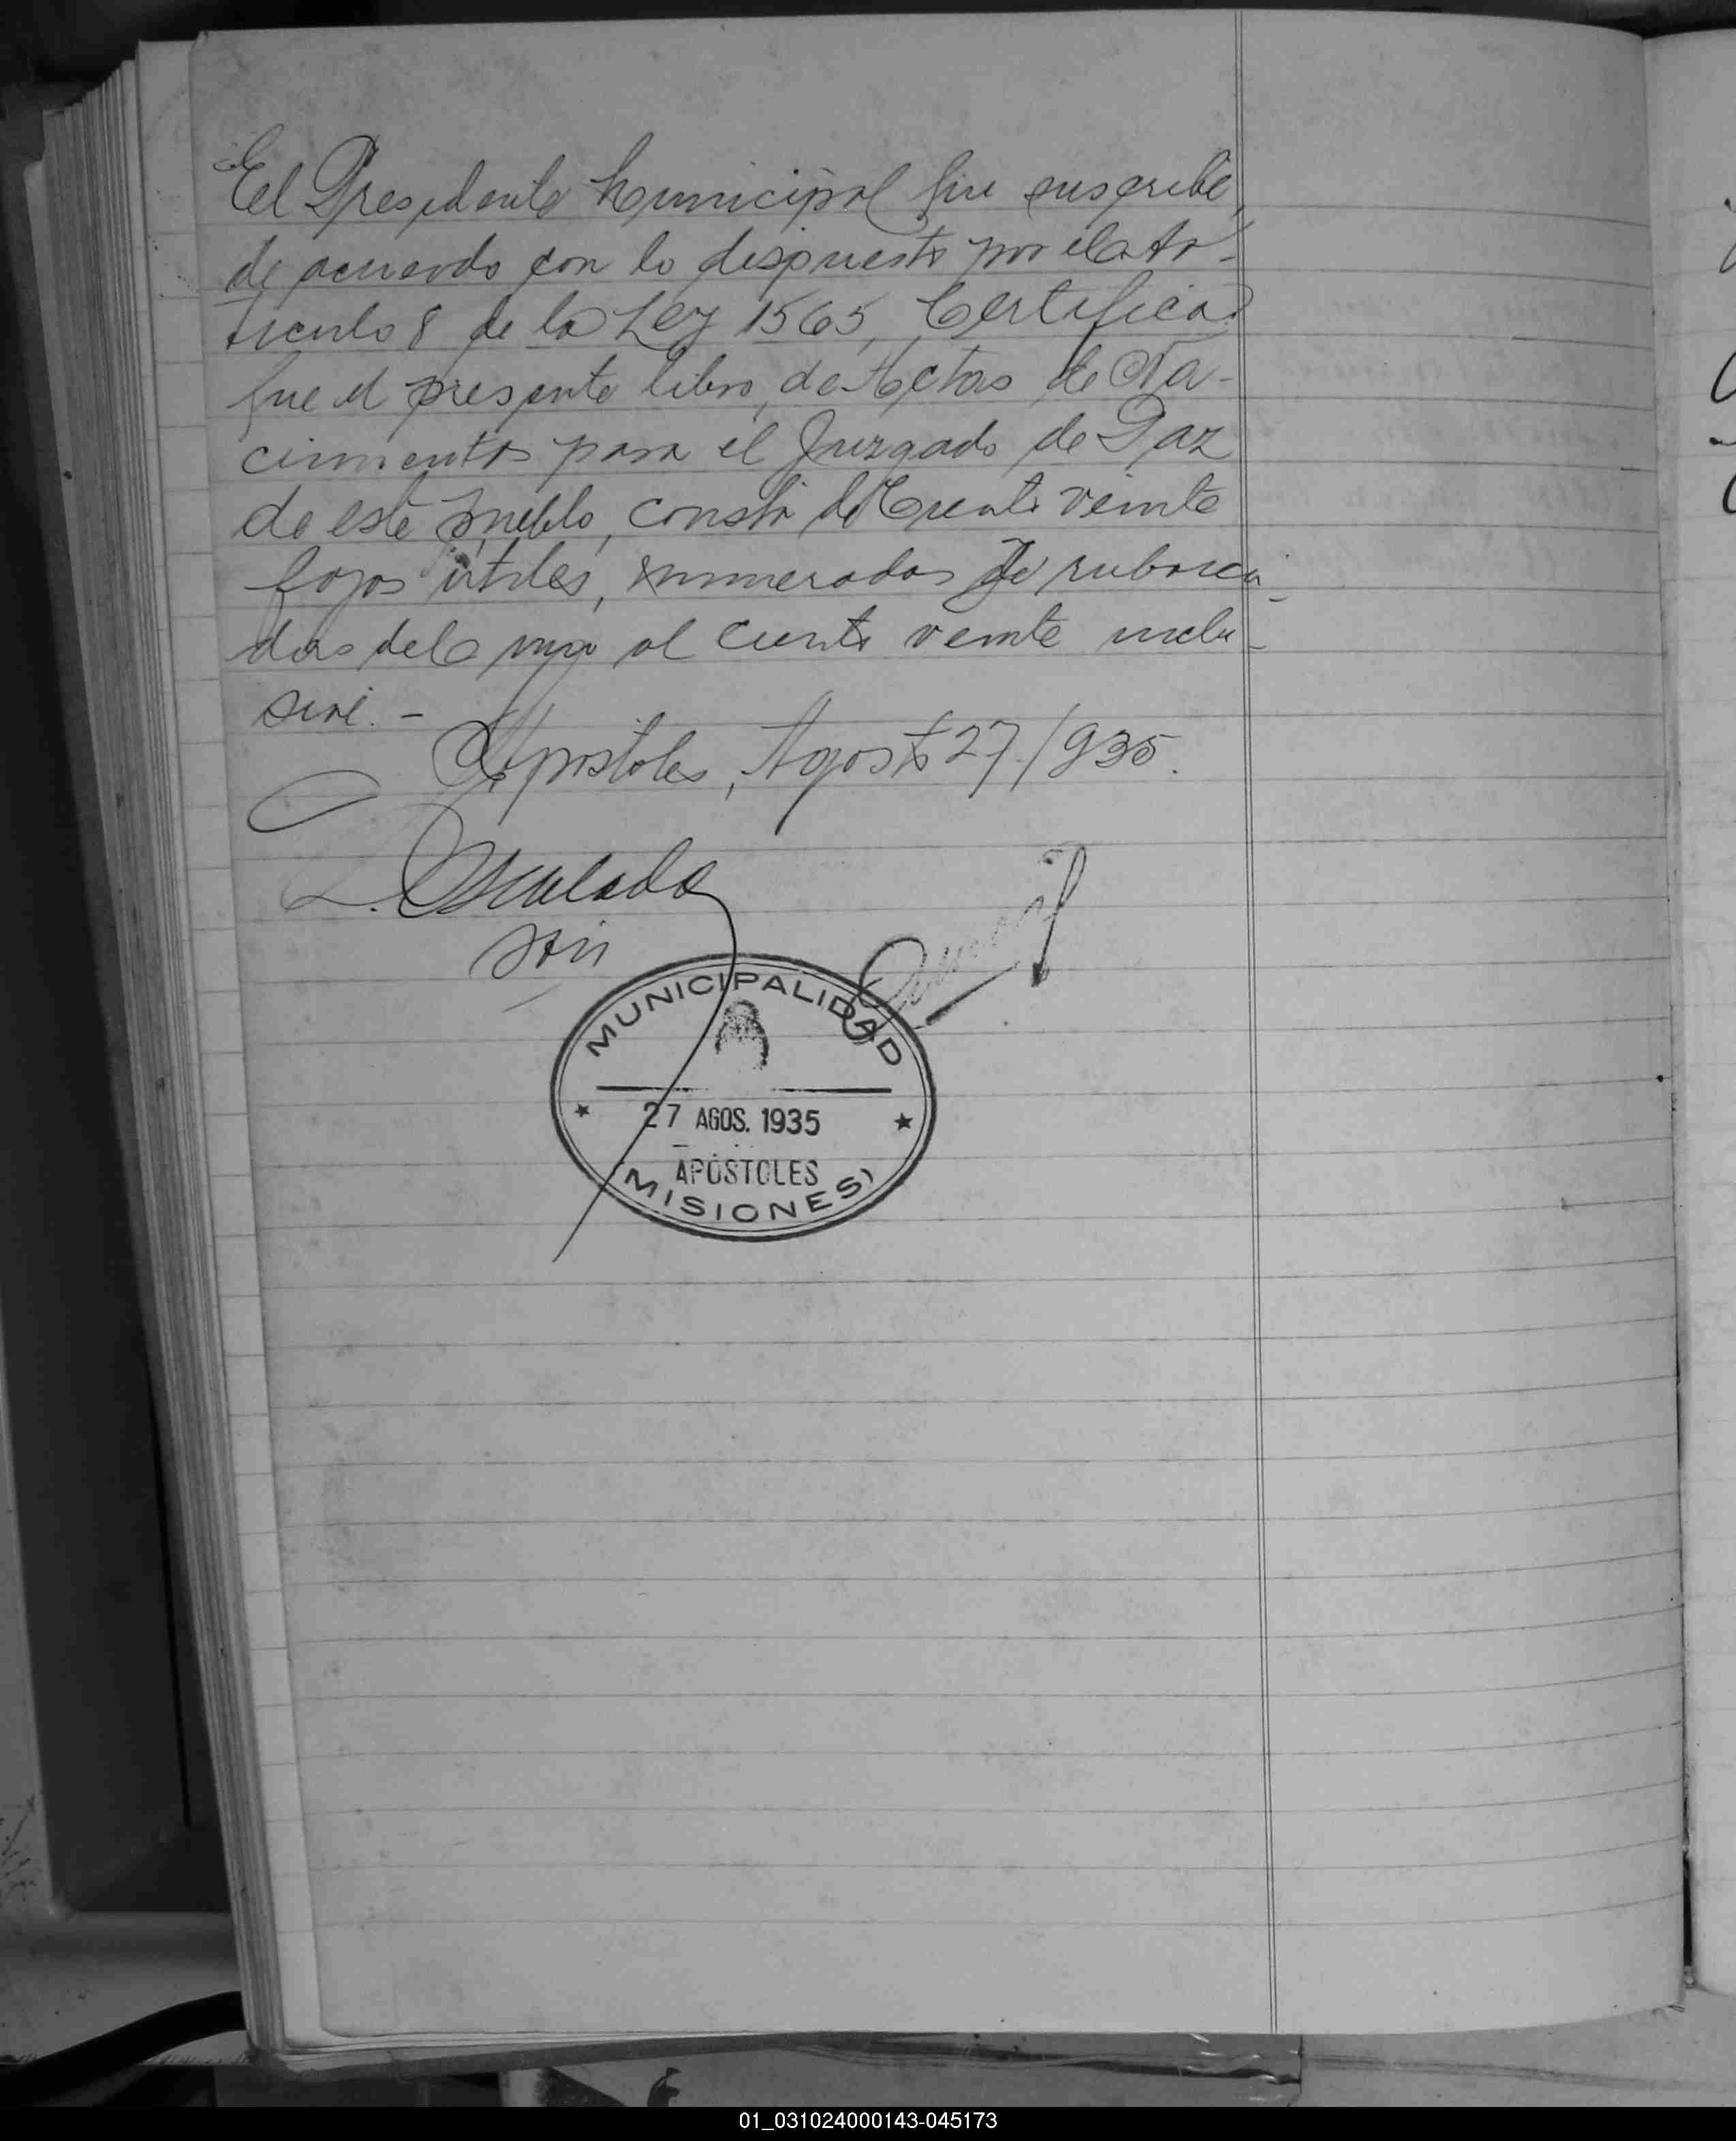 El Presidente Municipal que suscribe,
de acuerdo con lo dispuesto por el Ar-
ticulo 8 de la Ley 1565, Certifica:
que el presente libro, de Actas de Na-
cimientos para el Juzgado de Paz
de este pueblo, consta de Ciento veinte
fojas útiles, enumeradas y rubrica-
das del uno al ciento veinte inclu-
sive. -
Apostoles, Agosto 27/935.
Escalada
MUNICIPALIDAD
27 AGOS. 1935
APÓSTOLES
(MISIONES)
01_031024000143-045173